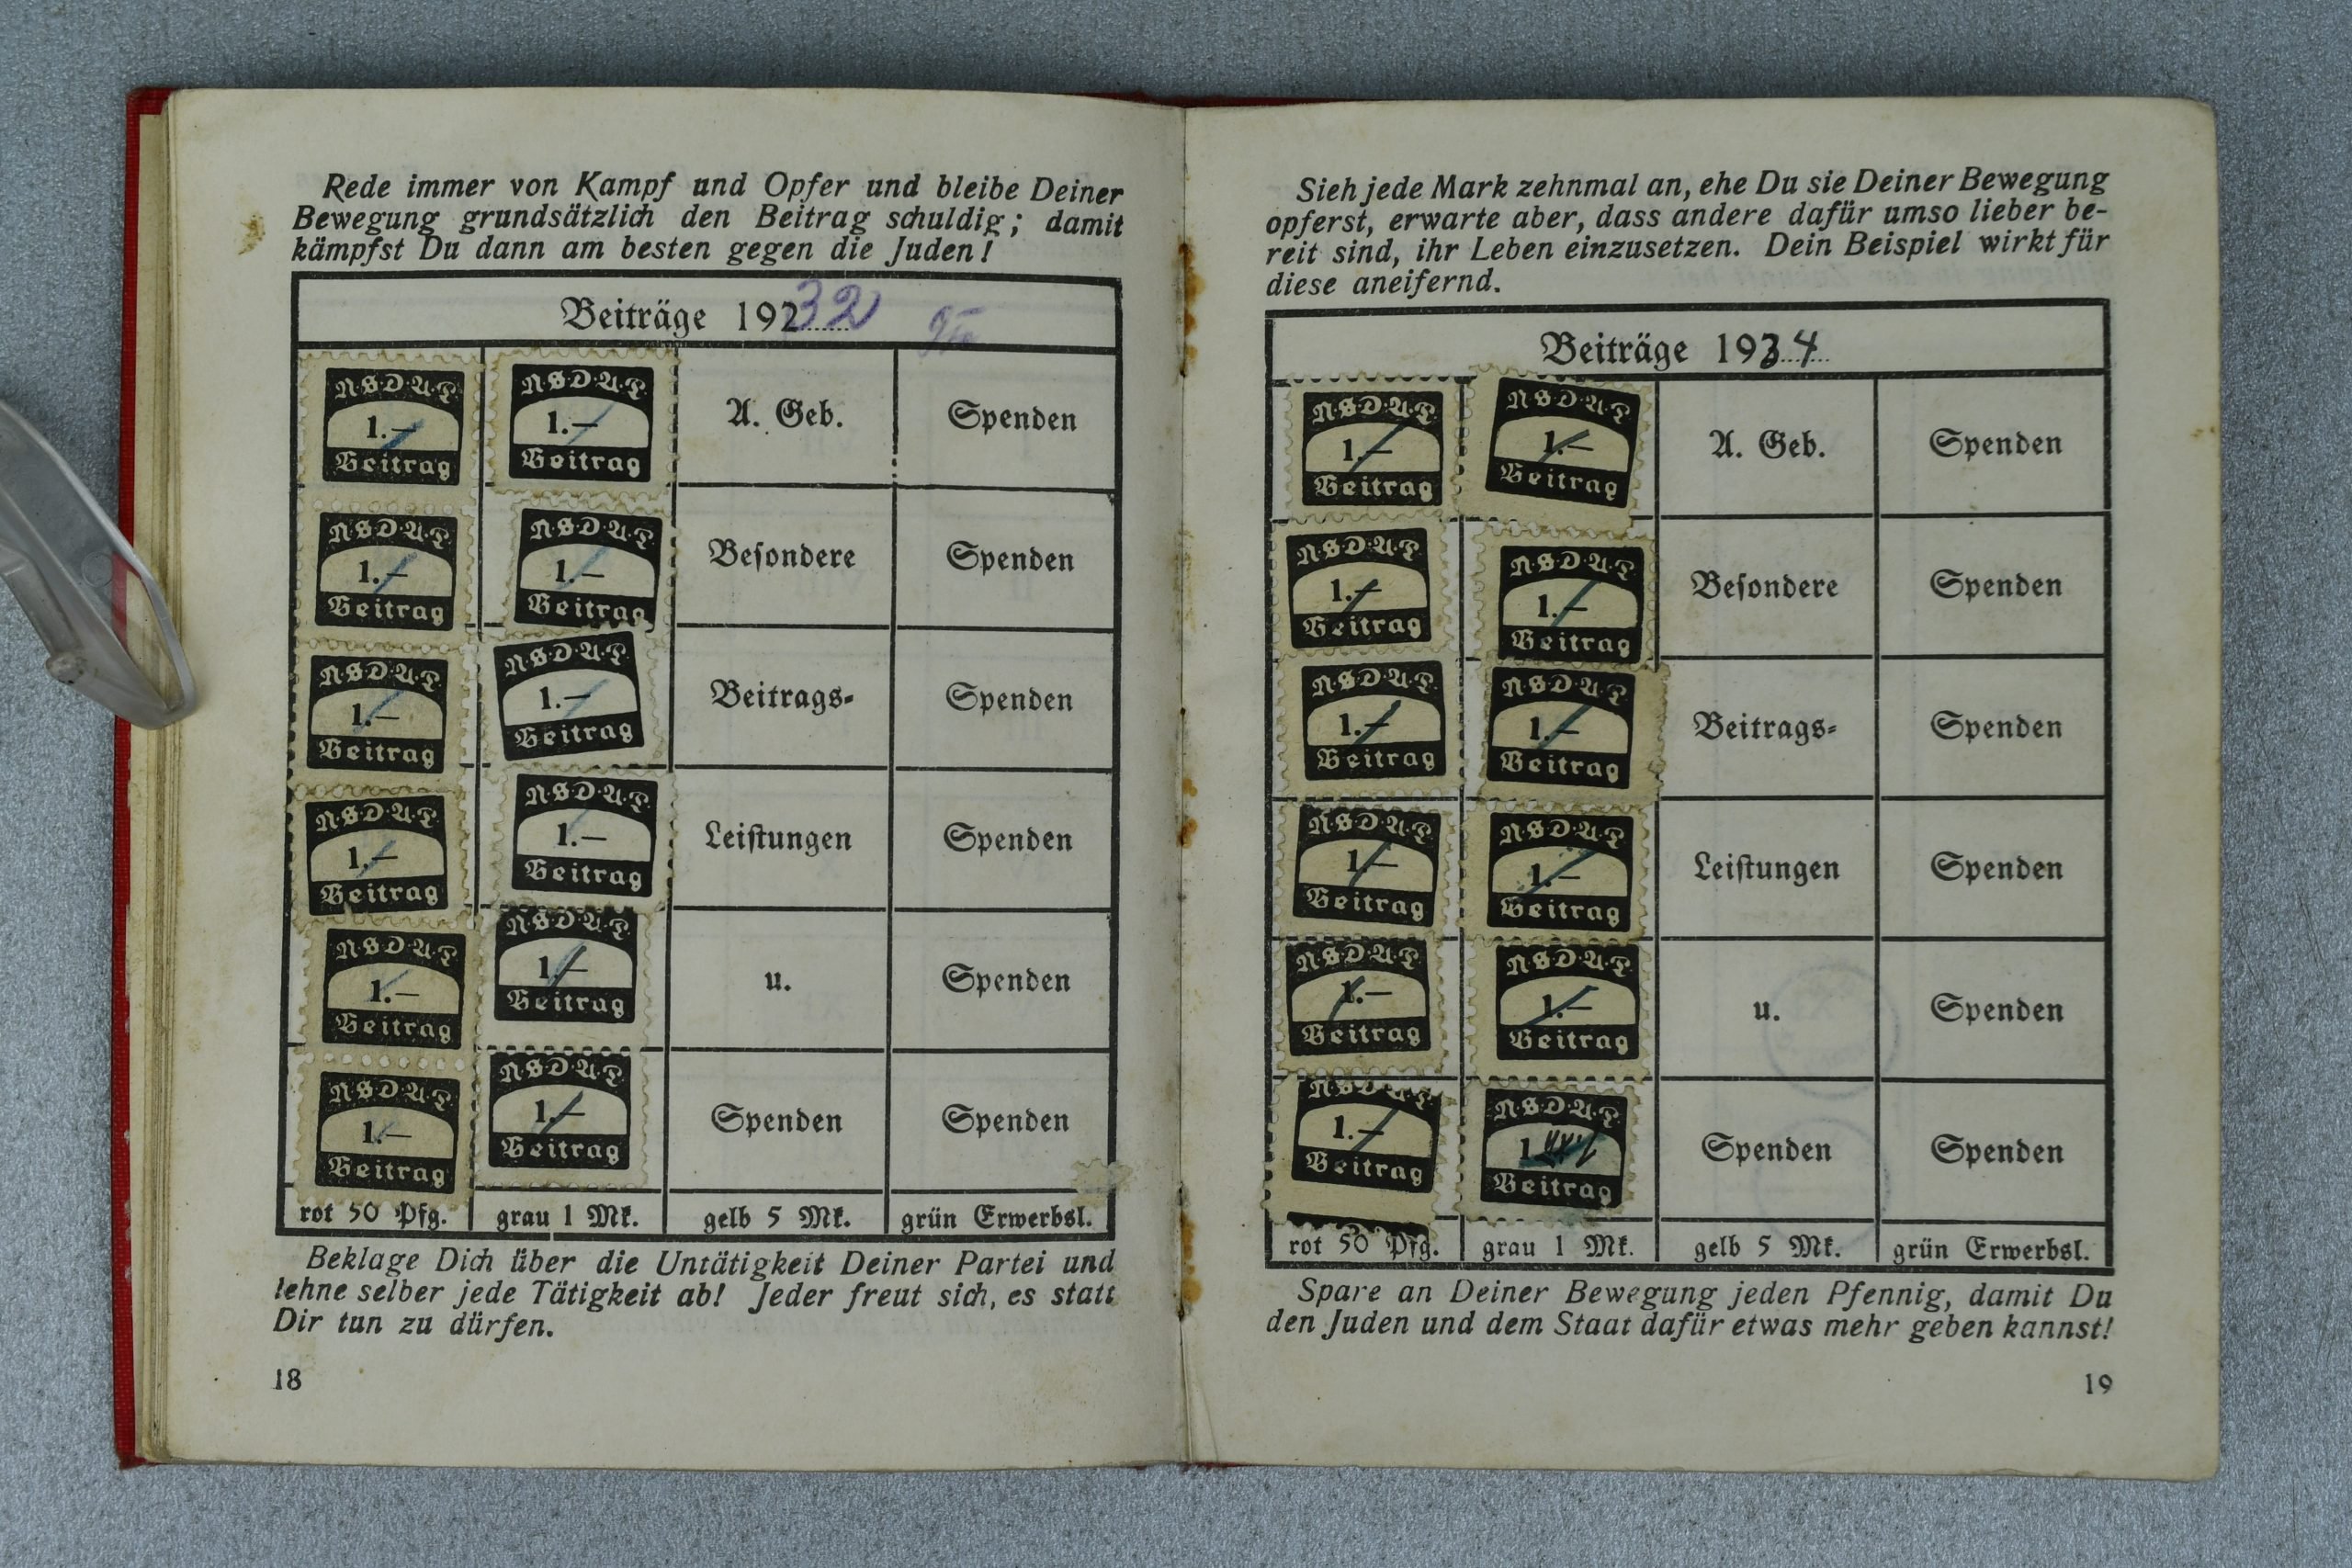 Rede immer von Kampf und Opfer und bleibe Deiner
Bewegung grundsätzlich den Beitrag schuldig; damit
kämpfst Du dann am besten gegen die Juden!
Beiträge 19232
N·S·D·A·P. N·S·D·A·P.
1.— 1.— A. Geb. Spenden
Beitrag Beitrag
N·S·D·A·P. N·S·D·A·P.
1.— 1.— Besondere Spenden
Beitrag Beitrag
N·S·D·A·P. N·S·D·A·P.
1.— 1.— Beitrags- Spenden
Beitrag Beitrag
N·S·D·A·P. N·S·D·A·P.
1.— 1.— Leistungen Spenden
Beitrag Beitrag
N·S·D·A·P. N·S·D·A·P.
1.— 1.— u. Spenden
Beitrag Beitrag
N·S·D·A·P. N·S·D·A·P.
1.— 1.— Spenden Spenden
Beitrag Beitrag
rot 50 Pfg. grau 1 Mk. gelb 5 Mk. grün Erwerbsl.
Beklage Dich über die Untätigkeit Deiner Partei und
lehne selber jede Tätigkeit ab! Jeder freut sich, es statt
Dir tun zu dürfen.
18
Sieh jede Mark zehnmal an, ehe Du sie Deiner Bewegung
opferst, erwarte aber, dass andere dafür umso lieber be-
reit sind, ihr Leben einzusetzen. Dein Beispiel wirkt für
diese aneifernd.
Beiträge 1934
N·S·D·A·P. N·S·D·A·P.
1.— 1.— A. Geb. Spenden
Beitrag Beitrag
N·S·D·A·P. N·S·D·A·P.
1.— 1.— Besondere Spenden
Beitrag Beitrag
N·S·D·A·P. N·S·D·A·P.
1.— 1.— Beitrags- Spenden
Beitrag Beitrag
N·S·D·A·P. N·S·D·A·P.
1.— 1.— Leistungen Spenden
Beitrag Beitrag
N·S·D·A·P. N·S·D·A·P.
1.— 1.— u. Spenden
Beitrag Beitrag
N·S·D·A·P. N·S·D·A·P.
1.— 1. Spenden Spenden
Beitrag Beitrag
rot 50 Pfg. grau 1 Mk. gelb 5 Mk. grün Erwerbsl.
Spare an Deiner Bewegung jeden Pfennig, damit Du
den Juden und dem Staat dafür etwas mehr geben kannst!
19